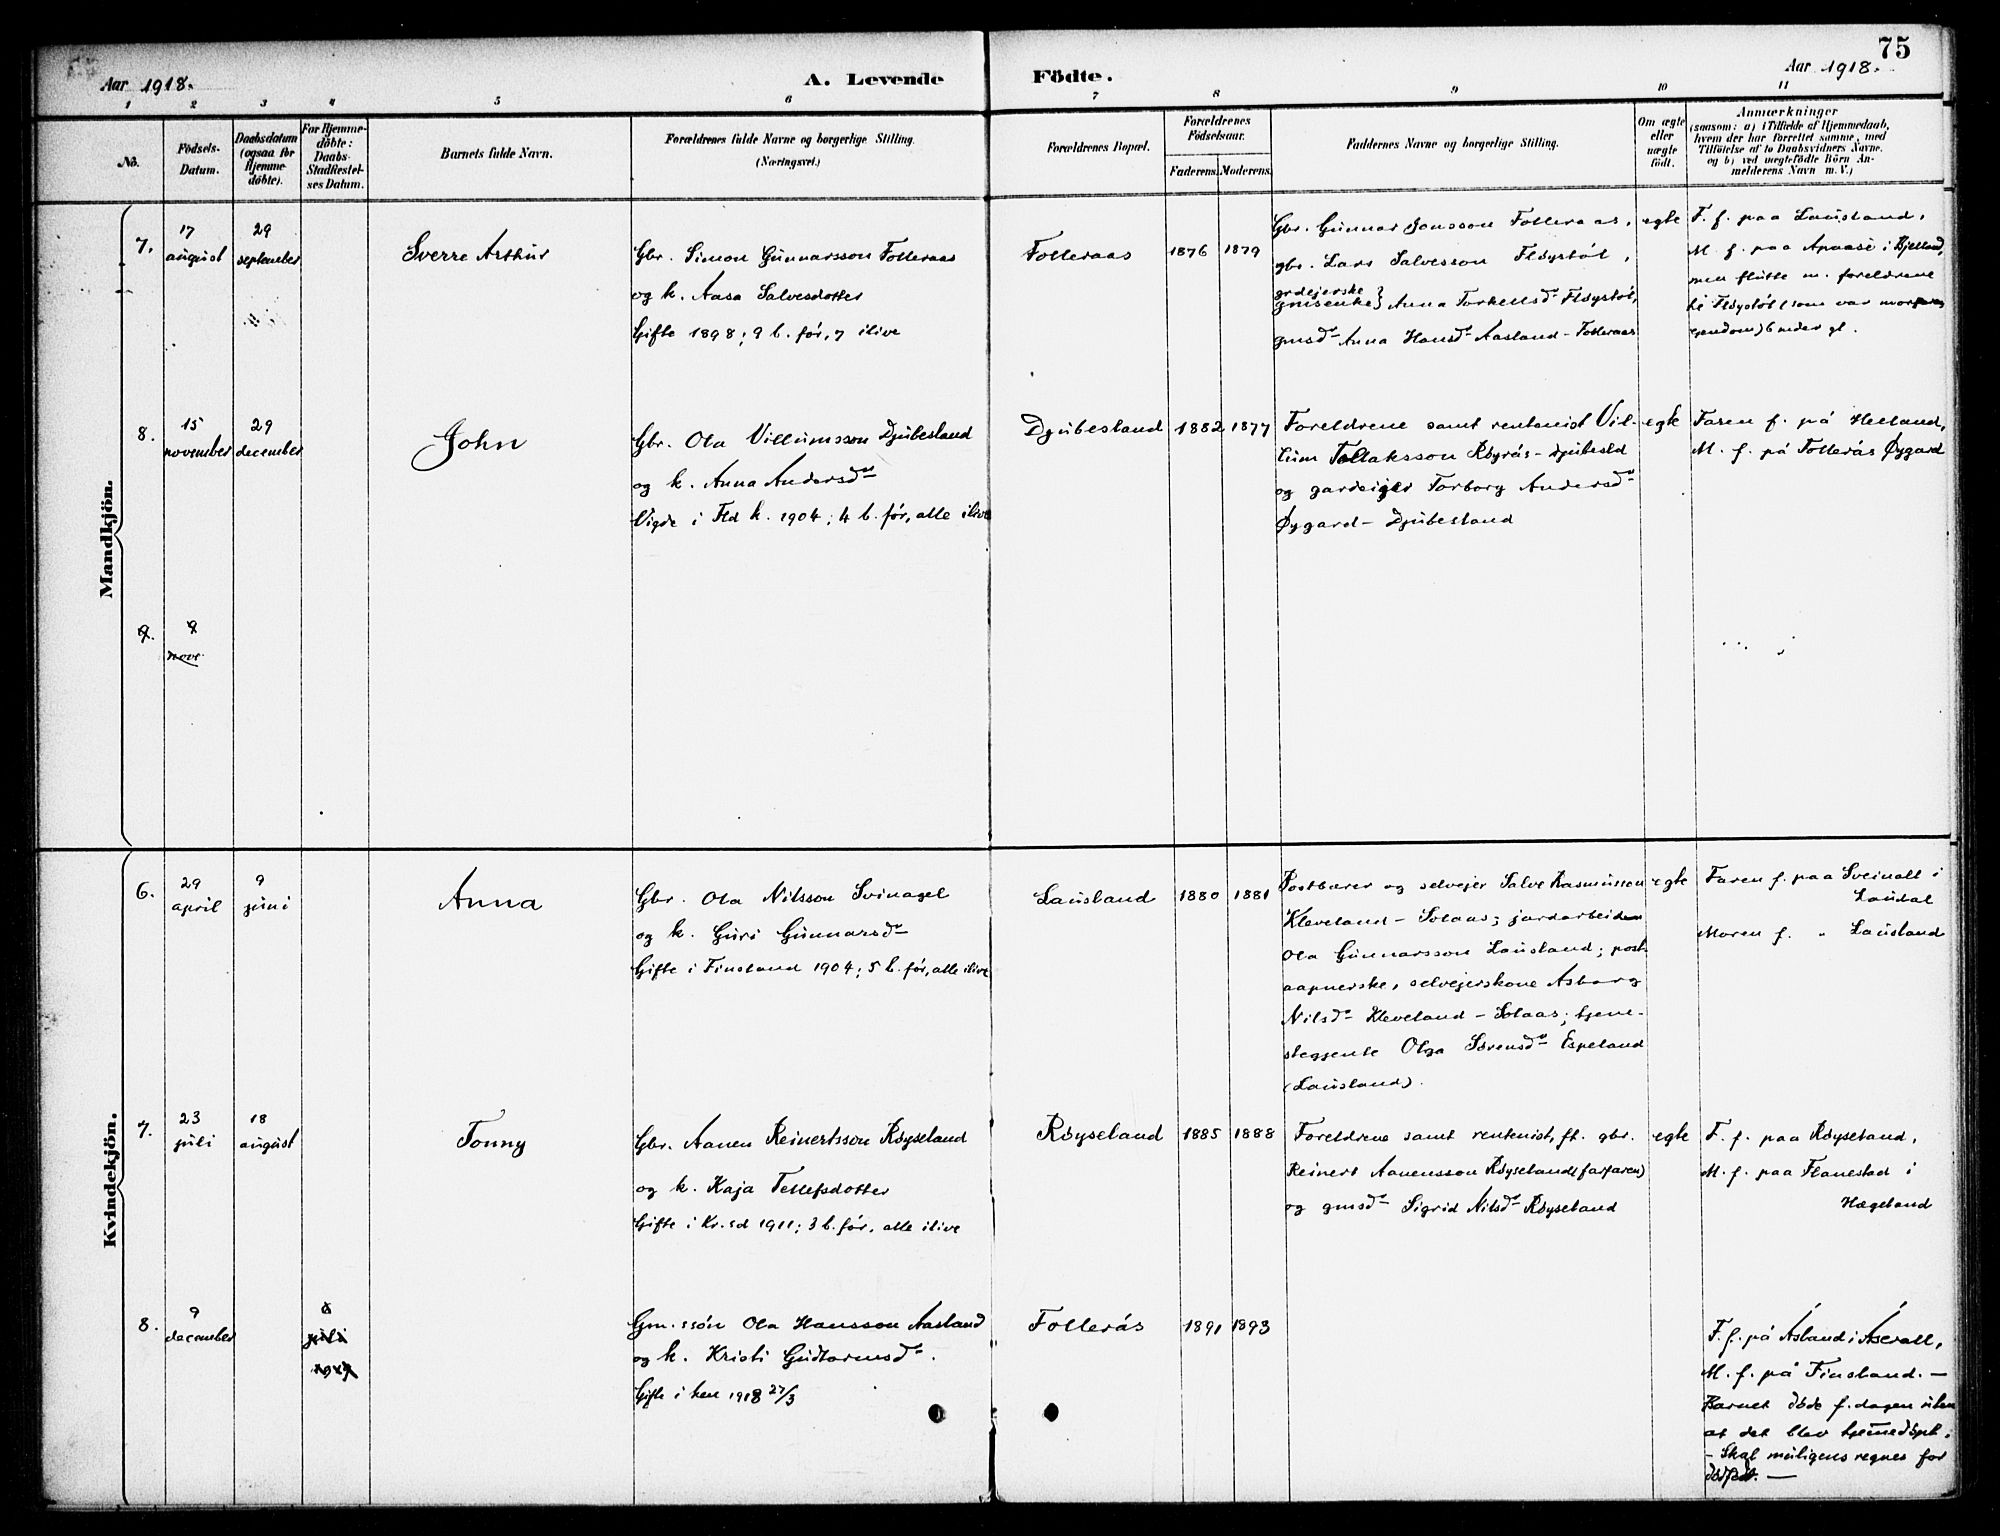 75
Aar 1918.
A. Levende Födte.
Aar 1918.
1 2 3 4 5 6 7 8 9 10 11
No.
Födsels-
Datum.
Daabsdatum
(ogsaa for
Hjemme-
döbte).
For Hjemme-
döbte:
Daabs-
Stadfæstel-
ses Datum.
Barnets fulde Navn.
Forældrenes fulde Navne og borgerlige Stilling.
(Næringsvei.)
Forældrenes Bopæl.
Forældrenes
Födselsaar.
Faderens. Moderens.
Faddernes Navne og borgerlige Stilling.
Om ægte
eller
uægte
födt.
Anmærkninger
(saasom: a) i Tilfælde af Hjemmedaab,
hvem der har forrettet samme, med
Tilföielse af to Daabsvidners Navne.
og b) ved uægtefödte Börn An-
melderens Navn m. V.)
Mandkjön.
7.
17
august
29
september
Sverre Arthur
Gbr. Simon Gunnarsson Folleraas
og k. Aasa Salvesdotter
Gifte 1898; 9 b. før, 7 ilive
Folleraas
1876
1879
Gbr. Gunnar Jonsson Folleraas,
gbr. Lars Salvesson Fløystøl,
grdejerske
gmsenke} Anna Torkellsd. Fløystøl,
gmsd. Anna Hansd. Aasland-Folleraas
egte
F. f. paa Lausland,
M f. paa Apaase i Bjelland,
men flutte m. foreldrene
ti Fløystøl (som var morfarens
ejendom) 6 neder gl.
8.
15
november
29
december
John
Gbr. Ola Villumsson Djubesland
og k. Anna Andersd.
Vigde i Fld k. 1904; 4 b. før, alle ilive
Djubesland
1882
1877
Foreldrene samt rentenist Vil-
lum Tollaksson Røyrås-Djubesld
og gardeiger Torborg Andersd.
Øygard-Djubesland
egte
Faren f. på Heiland,
M. f. på Follerås Øygard
9.
9
nove
Kvindekjön.
6.
29
april
9
juni
Anna
Gbr. Ola Nilsson Svinagel
og k. Guri Gunnarsd.
Gifte i Finsland 1904; 5 b. før, alle ilive
Lausland
1880
1881
Postbærer og selvejer Salve Rasmusson
Kleveland-Solaas; jordarbeider
Ola Gunnarsson Lausland; post-
aapnerske, selvejerskone Asborg
Nilsd. Kleveland-Solaas; tjene-
stegjente Olga Sørensd. Espeland
(Lausland).
egte
Faren f. paa Sveinall i
Laudal
Moren f. " Lausland
7.
23
juli
18
august
Tonny
Gbr. Aanen Reinertsson Røyseland
og k. Kaja Tellefsdotter
Gifte i Kr.sd 1911; 3 b. før, alle ilive
Røyseland
1885
1888
Foreldrene samt rentenist, ft. gbr.
Reinert Aanensson Røyseland (farfaren)
og gmsd. Sigrid Nilsd. Røyseland
egte
F. f. paa Røyseland,
M. f. paa Flanestad i
Hægeland
8.
9
december
6
juli
Gm.ssøn Ola Hansson Aasland
og k. Kristi Gudtormsd.
Gifte i her 1918 27/3
Follerås
1891
1893
F. f. på Åsland i Åserall,
M. f. på Finsland. —
Barnet døde f. dagen uten
at det blev hjemedøpt.
- Skal muligens regnes for
dødfødt. —